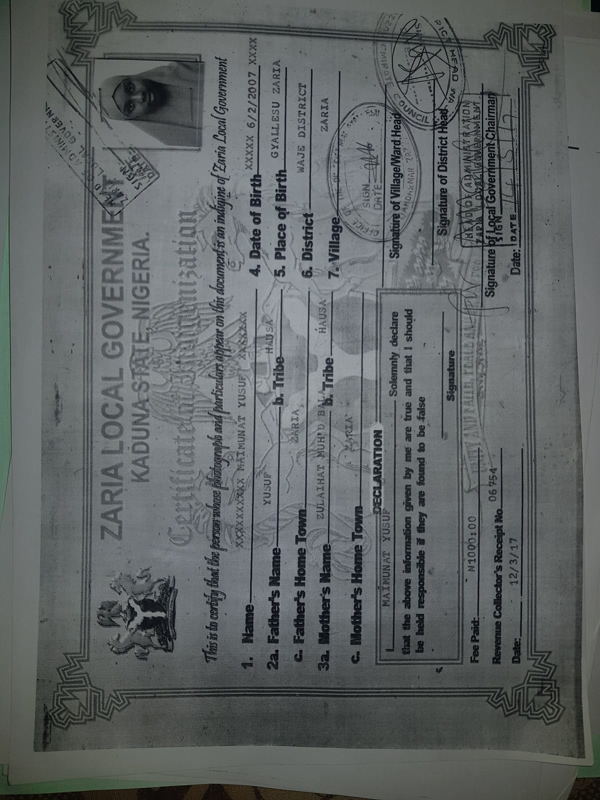 ZARIA LOCAL GOVERNMENT
KADUNA STATE, NIGERIA.
Certificate of Indigenization
This is to certify that the person whose photograph and particulars appear on this document is an indigine of Zaria Local Government
1. Name XXXXXXXXXX MAIMUNAT YUSUF XXXXXXX
2a. Father's Name YUSUF b. Tribe HAUSA
c. Father's Home Town ZARIA
3a. Mother's Name ZULAIHAT MUH'D b. Tribe HAUSA
c. Mother's Home Town ZARIA
4. Date of Birth XXXXX 6/2/2007 XXXX
5. Place of Birth GYALLESU ZARIA
6. District WAJE DISTRICT
7. Village ZARIA
DECLARATION
I MAIMUNAT YUSUF Solemnly declare
that the above information given by me are true and that I should
be held responsible if they are found to be false
Signature
Fee Paid: N1000:00
Revenue Collector's Receipt No. 06754
Date: 12/3/17
SIGN
DATE
Signature of Village/Ward Head
COUNCIL
Signature of District Head
HEAD OF ADMINISTRATION
SIGN
Signature of Local Government Chairman
Date:
DATE